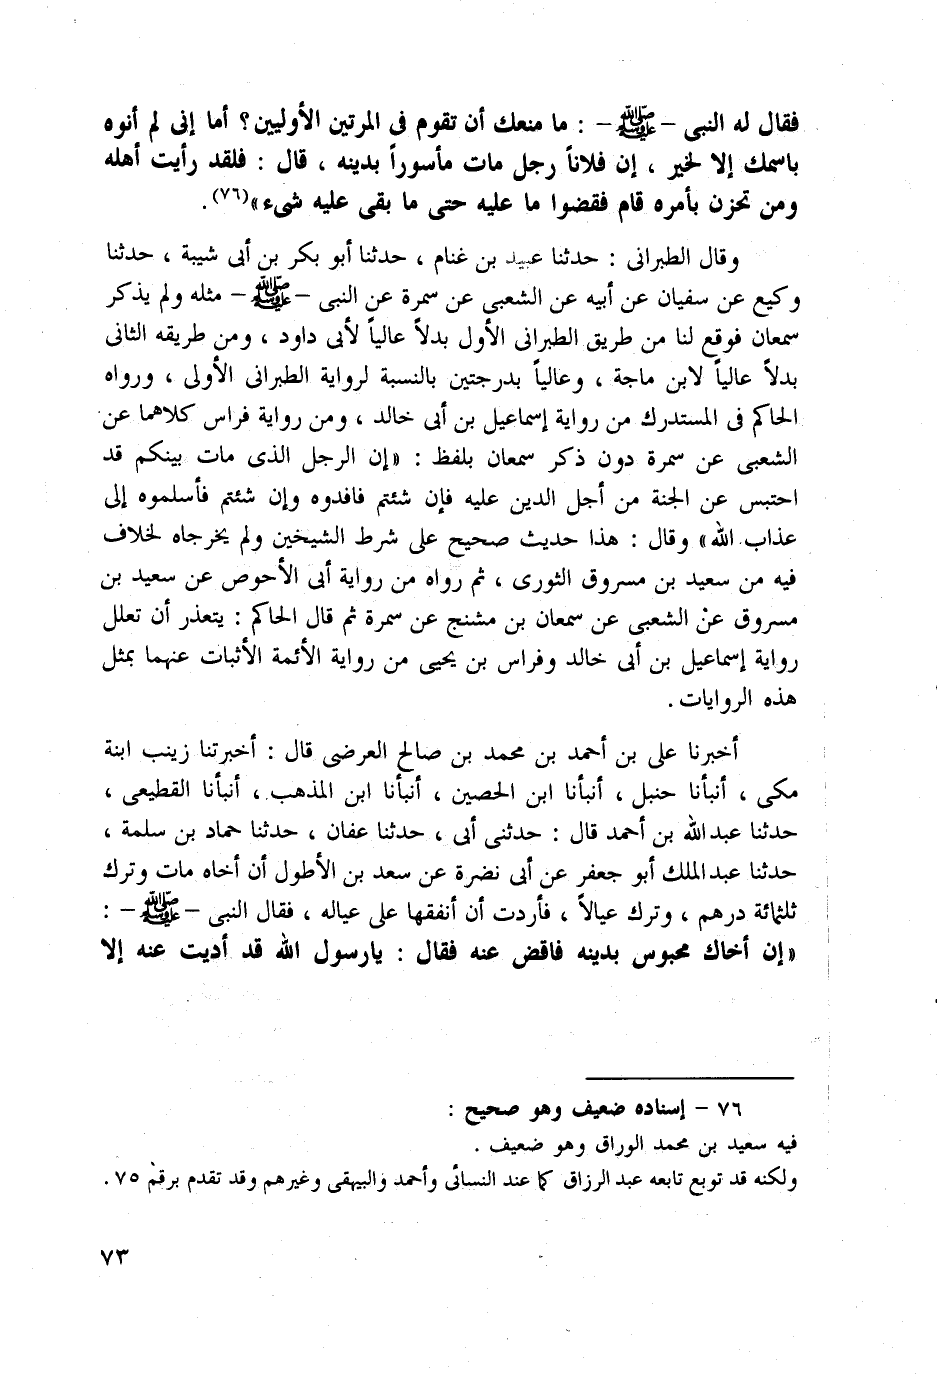 فقال له النبى – ﷺ – : ما منعك أن تقوم فى المرتين الأوليين؟ أما إنى لم أنوه
باسمك إلا لخير ، إن فلاناً رجل مات مأسوراً بدينه ، قال : فلقد رأيت أهله
ومن تحزن بأمره قام فقضوا ما عليه حتى ما بقى عليه شىء»(٧٦).
وقال الطبرانى : حدثنا عبيد بن غنام ، حدثنا أبو بكر بن أبى شيبة ، حدثنا
وكيع عن سفيان عن أبيه عن الشعبى عن سمرة عن النبى – ﷺ – مثله ولم يذكر
سمعان فوقع لنا من طريق الطبرانى الأول بدلاً عالياً لأبى داود ، ومن طريقه الثانى
بدلاً عالياً لابن ماجة ، وعالياً بدرجتين بالنسبة لرواية الطبرانى الأولى ، ورواه
الحاكم فى المستدرك من رواية إسماعيل بن أبى خالد ، ومن رواية فراس كلاهما عن
الشعبى عن سمرة دون ذكر سمعان بلفظ : «إن الرجل الذى مات بينكم قد
احتبس عن الجنة من أجل الدين عليه فإن شئتم فافدوه وإن شئتم فأسلموه إلى
عذاب الله» وقال : هذا حديث صحيح على شرط الشيخين ولم يخرجاه لخلاف
فيه من سعيد بن مسروق الثورى ، ثم رواه من رواية أبى الأحوص عن سعيد بن
مسروق عن الشعبى عن سمعان بن مشنج عن سمرة ثم قال الحاكم : يتعذر أن تعلل
رواية إسماعيل بن أبى خالد وفراس بن يحيى من رواية الأئمة الأثبات عنهما بمثل
هذه الروايات .
أخبرنا على بن أحمد بن محمد بن صالح العرضى قال : أخبرتنا زينب ابنة
مكى ، أنبأنا حنبل ، أنبأنا ابن الحصين ، أنبأنا ابن المذهب ، أنبأنا القطيعى ،
حدثنا عبد الله بن أحمد قال : حدثنى أبى ، حدثنا عفان ، حدثنا حماد بن سلمة ،
حدثنا عبد الملك أبو جعفر عن أبى نضرة عن سعد بن الأطول أن أخاه مات وترك
ثلثمائة درهم ، وترك عيالاً ، فأردت أن أنفقها على عياله ، فقال النبى – ﷺ – :
«إن أخاك محبوس بدينه فاقض عنه فقال : يارسول الله قد أديت عنه إلا
٧٦ – إسناده ضعيف وهو صحيح :
فيه سعيد بن محمد الوراق وهو ضعيف .
ولكنه قد توبع تابعه عبد الرزاق كما عند النسائى وأحمد والبيهقى وغيرهم وقد تقدم برقم ٧٥ .
٧٣